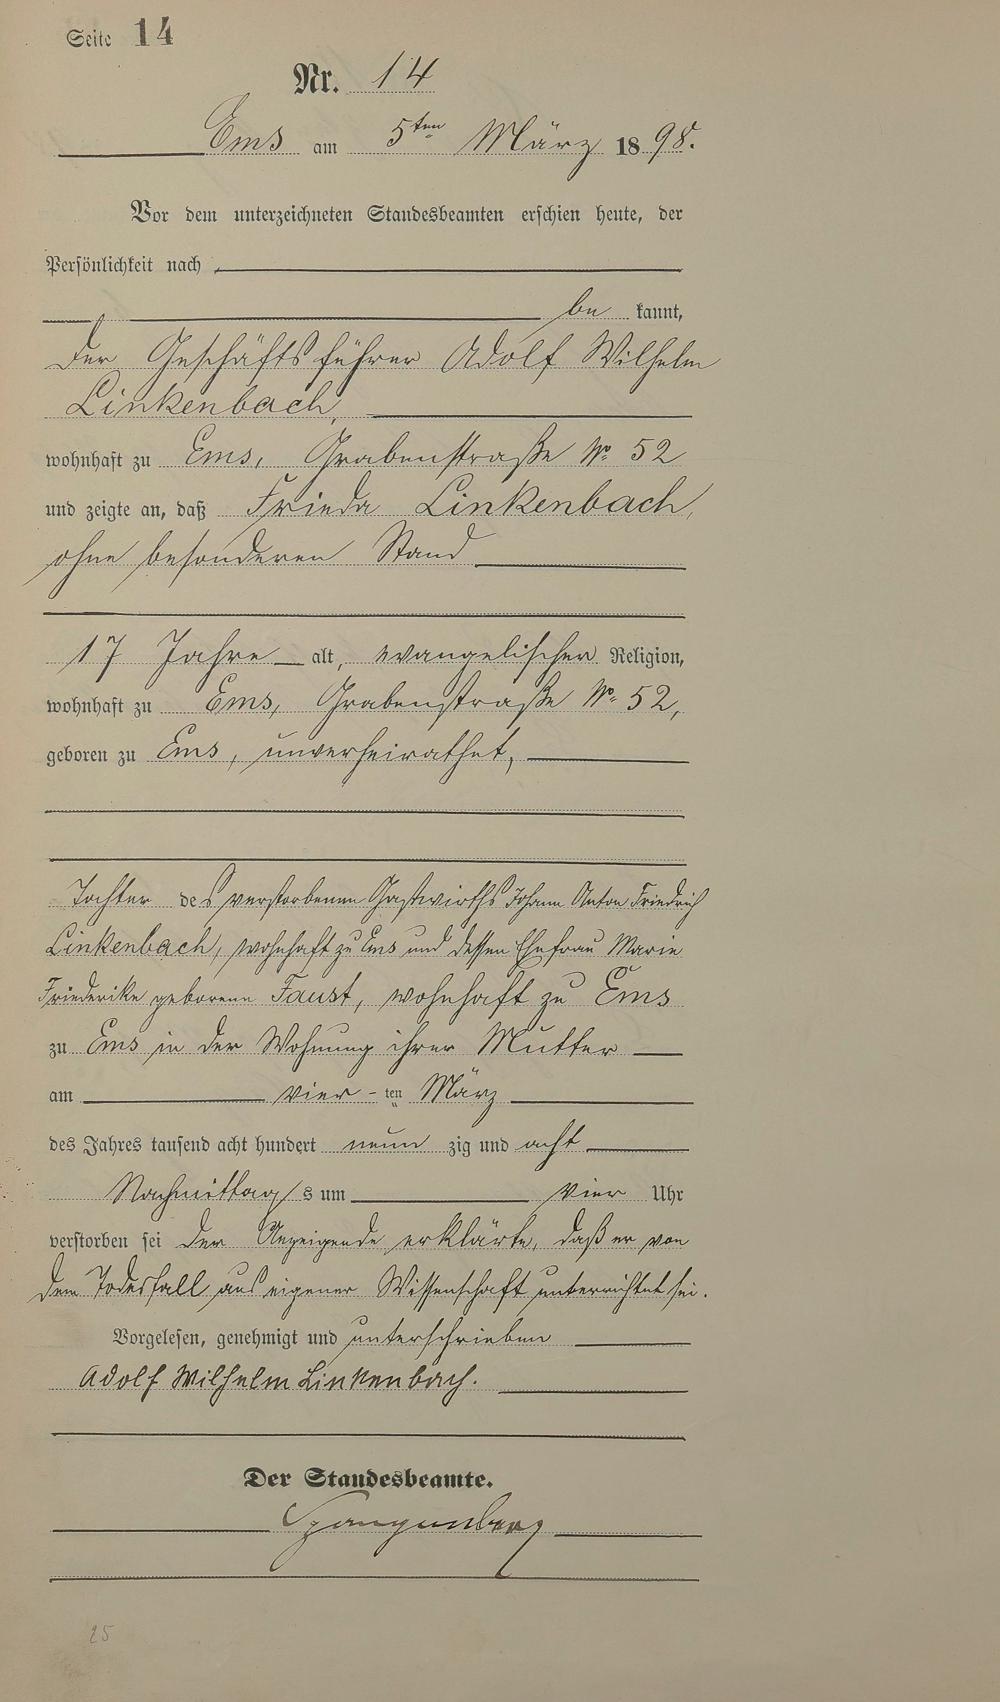 Seite 14
Nr. 14
Ems am 5ten März 1898.
Vor dem unterzeichneten Standesbeamten erschien heute, der
Persönlichkeit nach
be kannt,
der Geschäftsführer Adolf Wilhelm
Linkenbach,
wohnhaft zu Ems, Grabenstraße No. 52
und zeigte an, daß Frieda Linkenbach,
ohne besonderen Stand
17 Jahre alt, evangelischer Religion,
wohnhaft zu Ems, Grabenstraße No. 52,
geboren zu Ems, unverheirathet,
Tochter des verstorbenen Gastwirths Johann Anton Friedrich
Linkenbach, wohnhaft zu Ems und dessen Ehefrau Marie
Friederike geborene Faust, wohnhaft zu Ems
zu Ems in der Wohnung ihrer Mutter
am vier-ten März
des Jahres tausend acht hundert neun zig und acht
Nachmittags um vier Uhr
verstorben sei der Anzeigende erklärte, daß er von
dem Todesfall aus eigener Wissenschaft unterrichtet sei.
Vorgelesen, genehmigt und unterschrieben
Adolf Wilhelm Linkenbach.
Der Standesbeamte.
Spangenberg
25